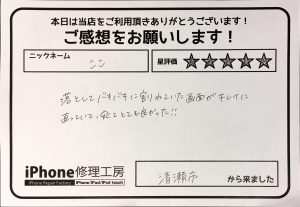 本日は当店をご利用頂きありがとうございます！
ご感想をお願いします！
ニックネーム
ここ
星評価
★★★★★
落としてバキバキに割れていた画面がキレイに
直っていて、とても良かった!!
iPhone修理工房
iPhone Repair Factory
iPhone/iPad/iPod touch
清瀬市
から来ました